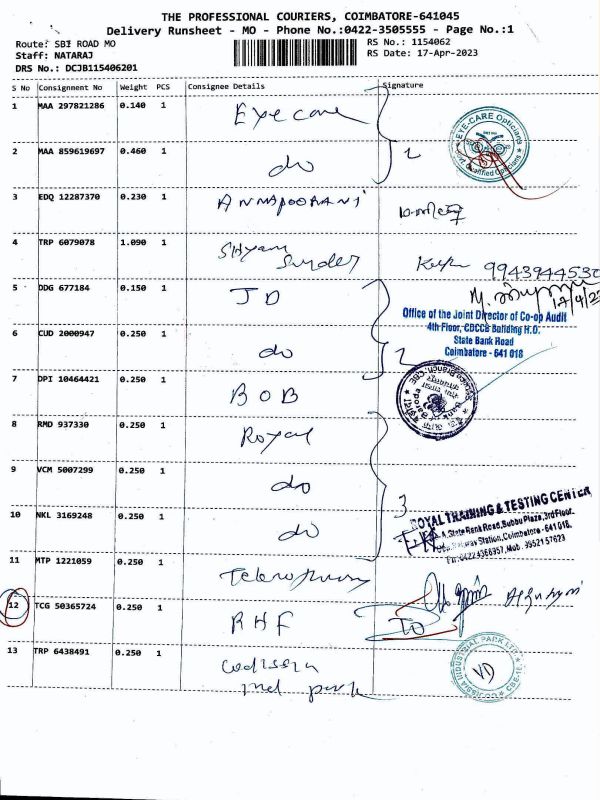 THE PROFESSIONAL COURIERS, COIMBATORE-641045
Delivery Runsheet - MO - Phone No.:0422-3505555 - Page No.:1
Route: SBI ROAD MO
RS No.: 1154062
Staff: NATARAJ
RS Date: 17-Apr-2023
DRS No.: DCJB115406201
S No Consignment No Weight PCS Consignee Details Signature
1 MAA 297821286 0.140 1 Eye care
EYE-CARE Opticians
Qualified Opticians
2 MAA 859619697 0.460 1 do 2
3 EDQ 12287370 0.230 1 ANNAPOORANI
4 TRP 6079078 1.090 1 Shyam Sunder
9943944532
5 DDG 677184 0.150 1 JD
17/4/23
Office of the Joint Director of Co-op Audit
4th Floor, CDCCB Building H.O.
State Bank Road
Coimbatore - 641 018
6 CUD 2000947 0.250 1 do 2
7 DPI 10464421 0.250 1 BOB
8 RMD 937330 0.250 1 Royal
9 VCM 5007299 0.250 1 do
3
ROYAL TRAINING & TESTING CENTER
State Bank Road, Bubbu Plaza, 3rd Floor,
Railway Station, Coimbatore - 641 018.
Ph: 0422 4366957, Mob: 99521 57623
10 NKL 3169248 0.250 1 do
11 MTP 1221059 0.250 1
12 TCG 50365724 0.250 1 RHF
13 TRP 6438491 0.250 1 codissia
ind park
INDUSTRIAL PARK LTD
VD